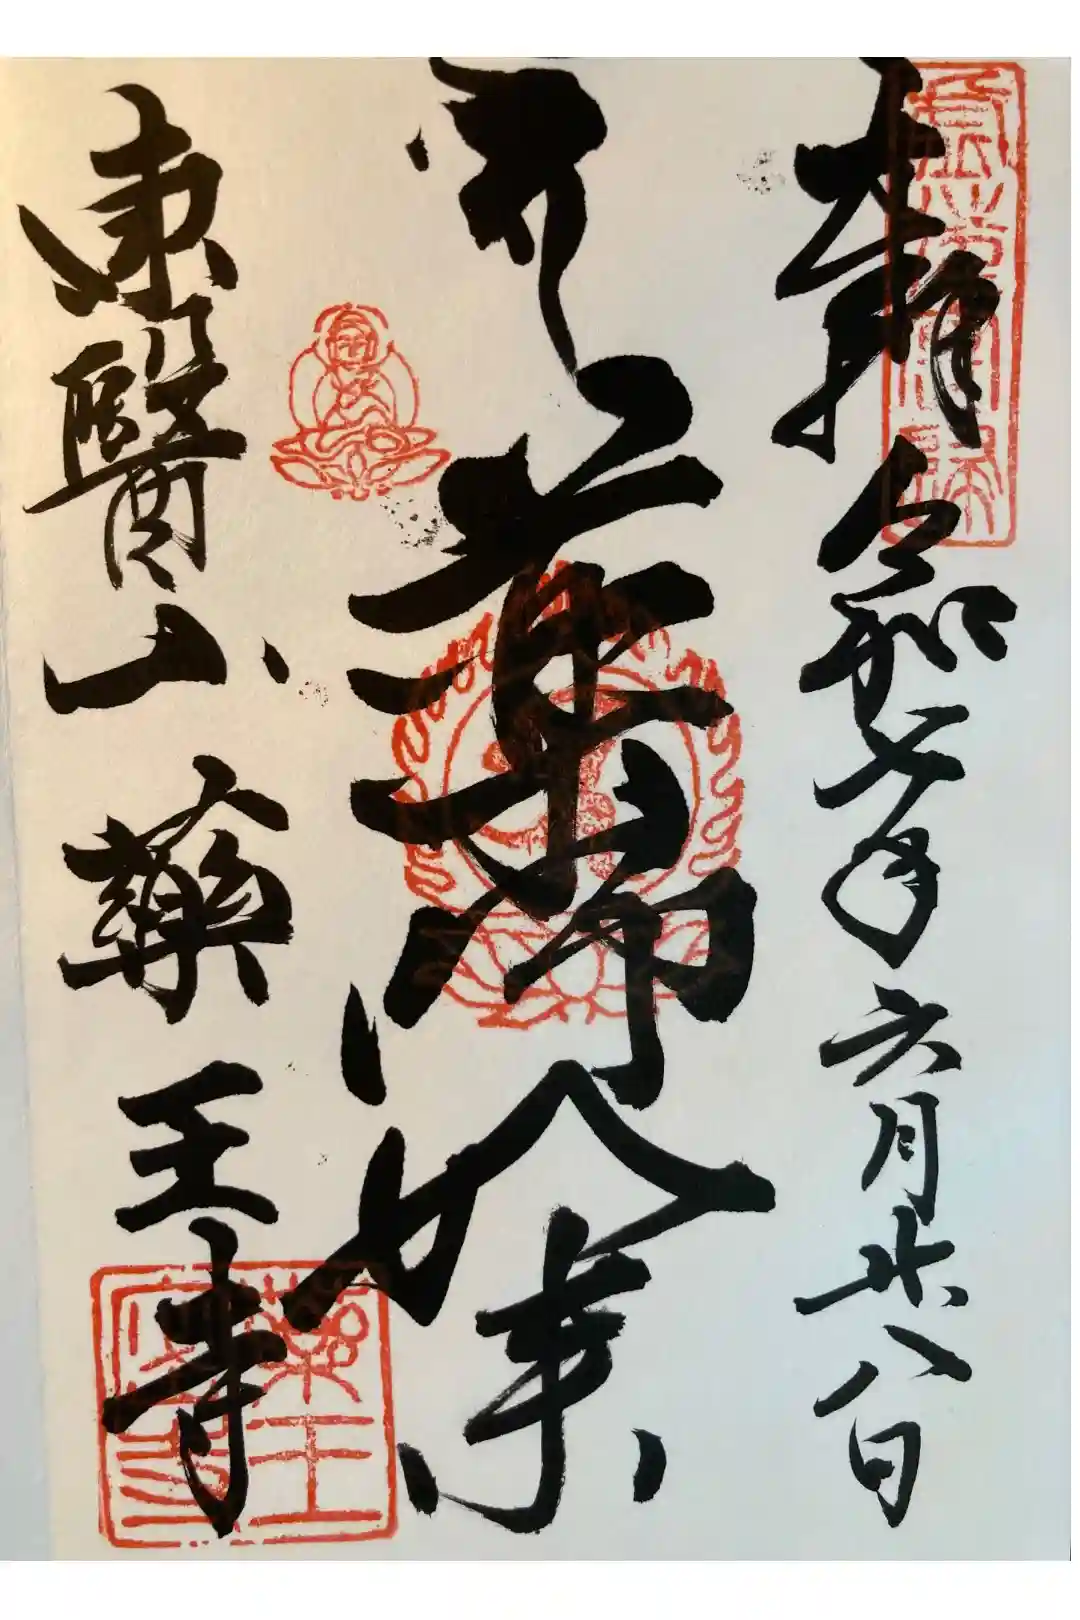 奉拝 令和七年六月廿八日
薬師如来
東醫山 藥王寺